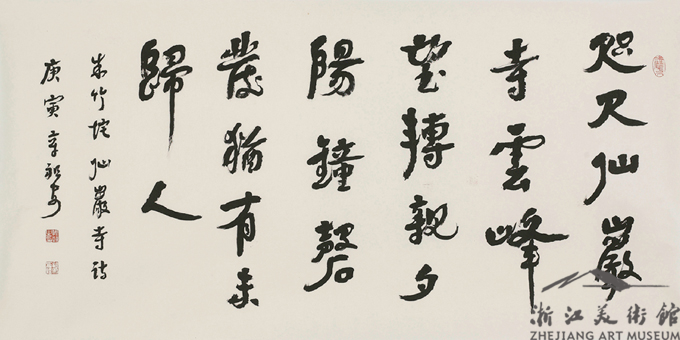 咫尺仙巖
寺雲峰
望轉親夕
陽鐘磬
發猶有未
歸人
朱竹垞仙巖寺詩
庚寅
浙江美術館
ZHEJIANG ART MUSEUM